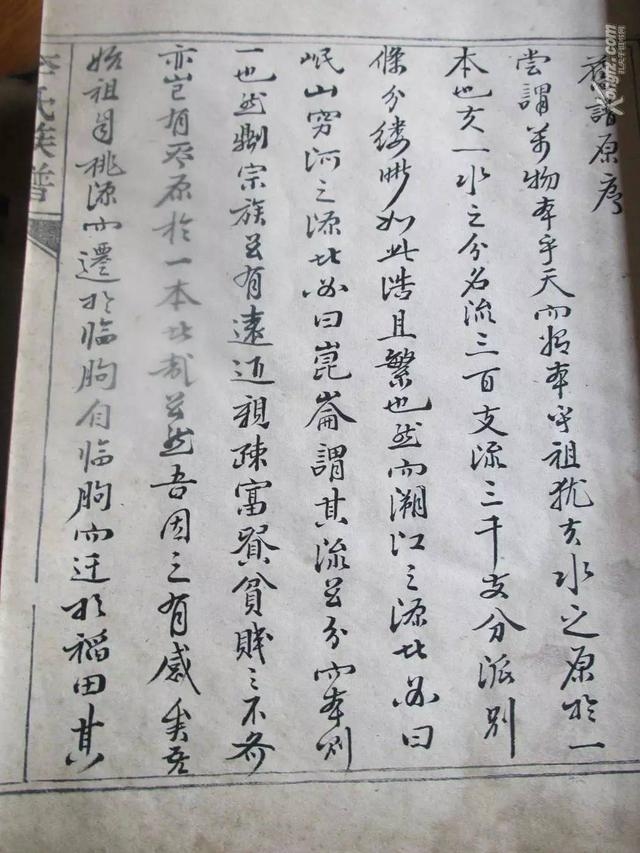 舊譜原序
嘗謂萬物本乎天而摠本乎祖猶夫水之原於一
本也夫一水之分名流三百支流三千支分派別
條分縷晰如此浩且繁也然而溯江之源者必曰
岷山窮河之源者必曰崑崙謂其流雖分而本則
一也然則宗族雖有遠近親疎富貴貧賤之不齊
亦豈有不原於一本者哉雖然吾因之有感矣吾
始祖自桃源而遷於臨朐自臨朐而迁於稻田其
李氏族譜
Kongfz.com
孔夫子旧书网